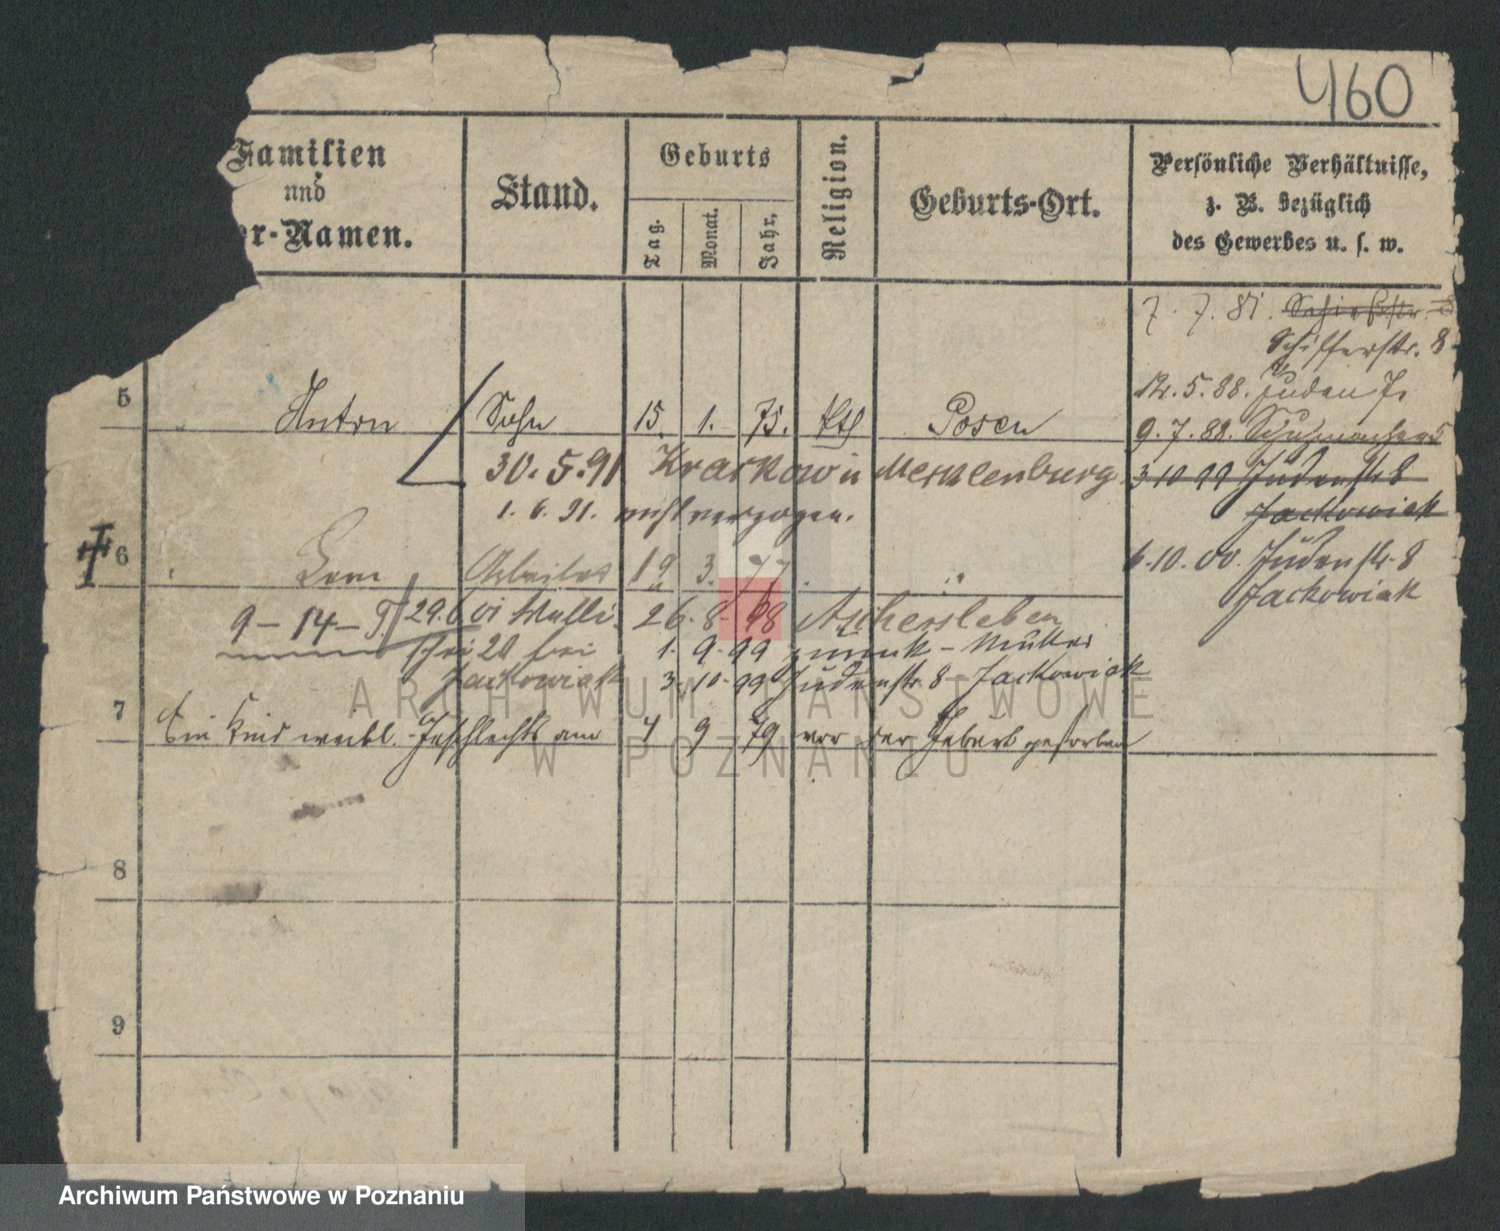 460
Familien
und
er-Namen.
Stand.
Geburts
Tag.
Monat.
Jahr.
Religion.
Geburts-Ort.
Persönliche Verhältnisse,
z. B. bezüglich
des Gewerbes u. s. w.
7. 7. 81.
Schifferstr. 8
5 Anton Sohn 15. 1. 75. kth Posen
5.88. Juden 7.
9.7.88.
30.5.91 Krackow in Mecklenburg
3 10 99 Judenstr 8
Jackowiak
1. 6. 91. verzogen.
6 Arbeiter 19 3. 77
6.10.00. Judenstr. 8
Jackowiak
9-14-9 29.6.01 26.8.98 Aschersleben
bei 1. 9. 99 zurück - Mutter
Jackowiak 3. 10. 99 Judenstr 8 Jackowiak
7 Ein Kind weibl. Geschlechts am 7 9 79 vor der Geburt gestorben
8
9
ARCHIWUM PAŃSTWOWE
W POZNANIU
Archiwum Państwowe w Poznaniu